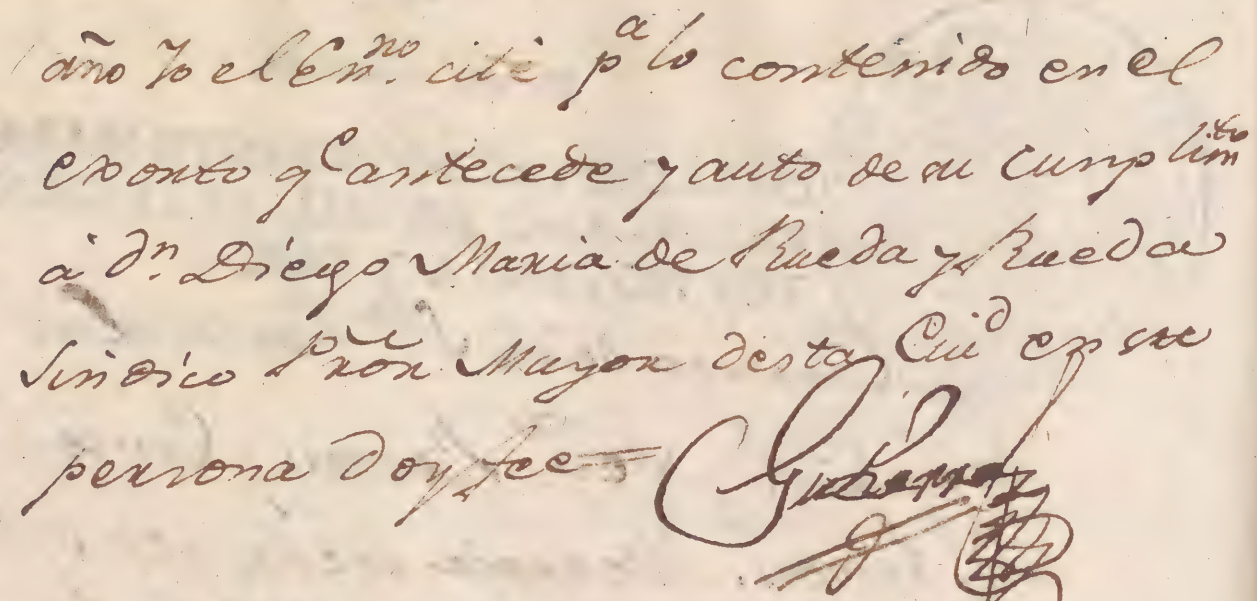 año Yo el En.no cité pa lo contenido en el
exorto qe antecede y auto de su cumplimto
à dn. Diego Maria de Rueda y Rueda
Sindico Pror. Mayor desta Ciud en su
persona doy fee = Gutierrez